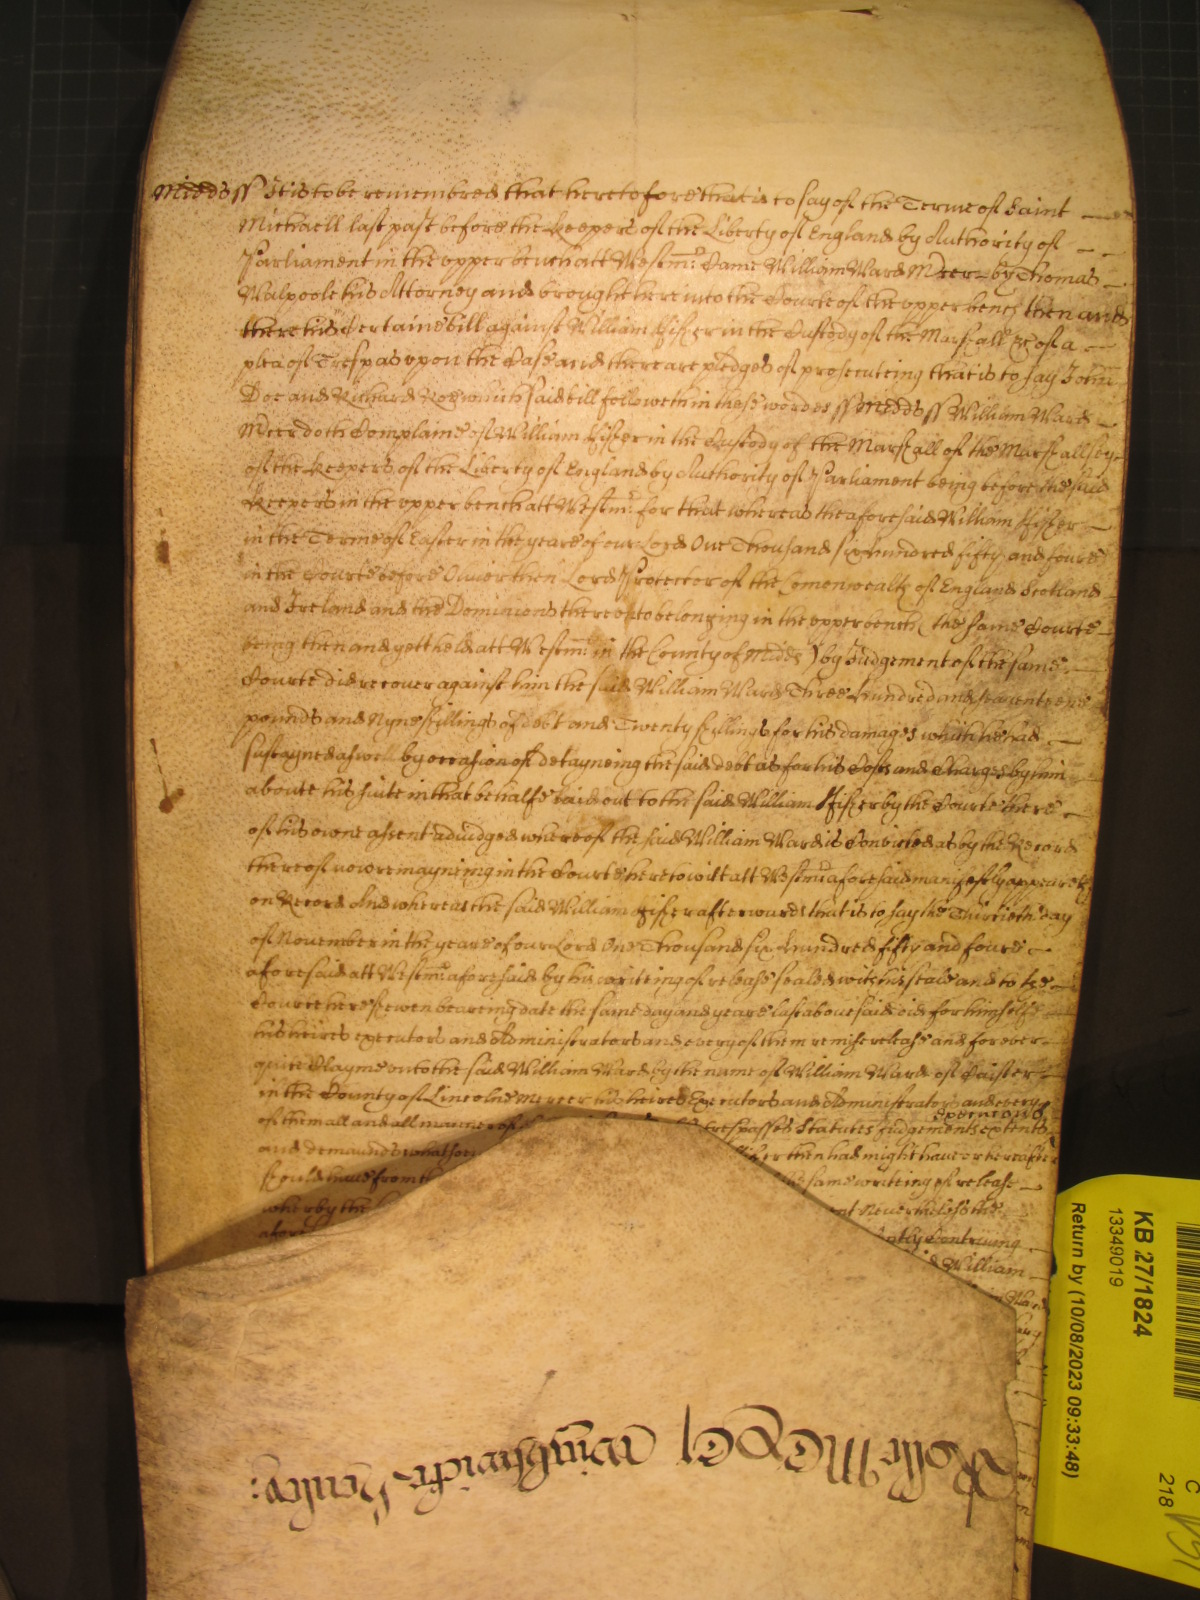 Midds ss It is to be remembred that heretofore that is to say of the Terme of Saint
Michaell last past before the Keepers of the Liberty of England by Authority of
Parliament in the upper bench att Westmr: Came William Ward Mrcer by Thomas
Walpoole his Attorney and brought here into the Courte of the upper bench then and
there his Certaine bill against William Fisher in the Custody of the Marshall &c of a
plea of Trespas upon the Case and there are pledges of prosecuteing that is to say John
Doe and Richard Roe which said bill followeth in these wordes ss Midds ss William Ward
Mercer doth Complaine of William Fisher in the Custody of the Marshall of the Marshallsey
of the Keepers of the Liberty of England by Authority of Parliament being before the said
Keepers in the upper bench att Westmr: for that whereas the aforesaid William Fisher
in the Terme of Easter in the yeare of our Lord One Thousand six hundred fifty and foure
in the Courte before Oliver then Lord Protector of the Comonwealth of England Scotland
and Ireland and the Dominions thereunto belonging in the upper bench (the same Courte
being then and yett held att Westmr: in the County of Midds) by Judgement of the same
Courte did recover against him the said William Ward Three hundred and seaventeene
pounds and Nyne shillings of debt and Twenty shillings for his damages which he had
sustayned aswell by occasion of detayneing the said debt as for his Costs and Charges by him
aboute his suite in that behalfe laid out to the said William Fisher by the Courte there
of his owne assent adiudged whereof the said William Ward is Convicted as by the Record
thereof now remayneing in the Courte here to witt att Westmr aforesaid manifestly appeareth
on Record And whereas the said William Fisher afterwards that is to say the Thirtieth day
of November in the yeare of our Lord One Thousand six hundred fifty and foure
aforesaid att Westmr: aforesaid by his writeing of release sealed with his seale and to the
Courte here shewen beareing date the same day and yeare last abovesaid did for himselfe
his heires executors and Administrators and every of them remise release and forever
quite Clayme unto the said William Ward by the name of William Ward of Caister
in the County of Lincolne Mercer his heires Executors and Administrators and every
of them all and all manner of trespasses Statutes Judgements extents executions
and demaunds whatsoe then had might have or hereafter
should have from the the same writeing of release
wherby the nt Nevertheles the
afore Contriving
William
Ward
Rolle MCCXC Wightwicke Henley:
KB 27/1824
13349019
Return by (10/08/2023 09:33:48)
C
218